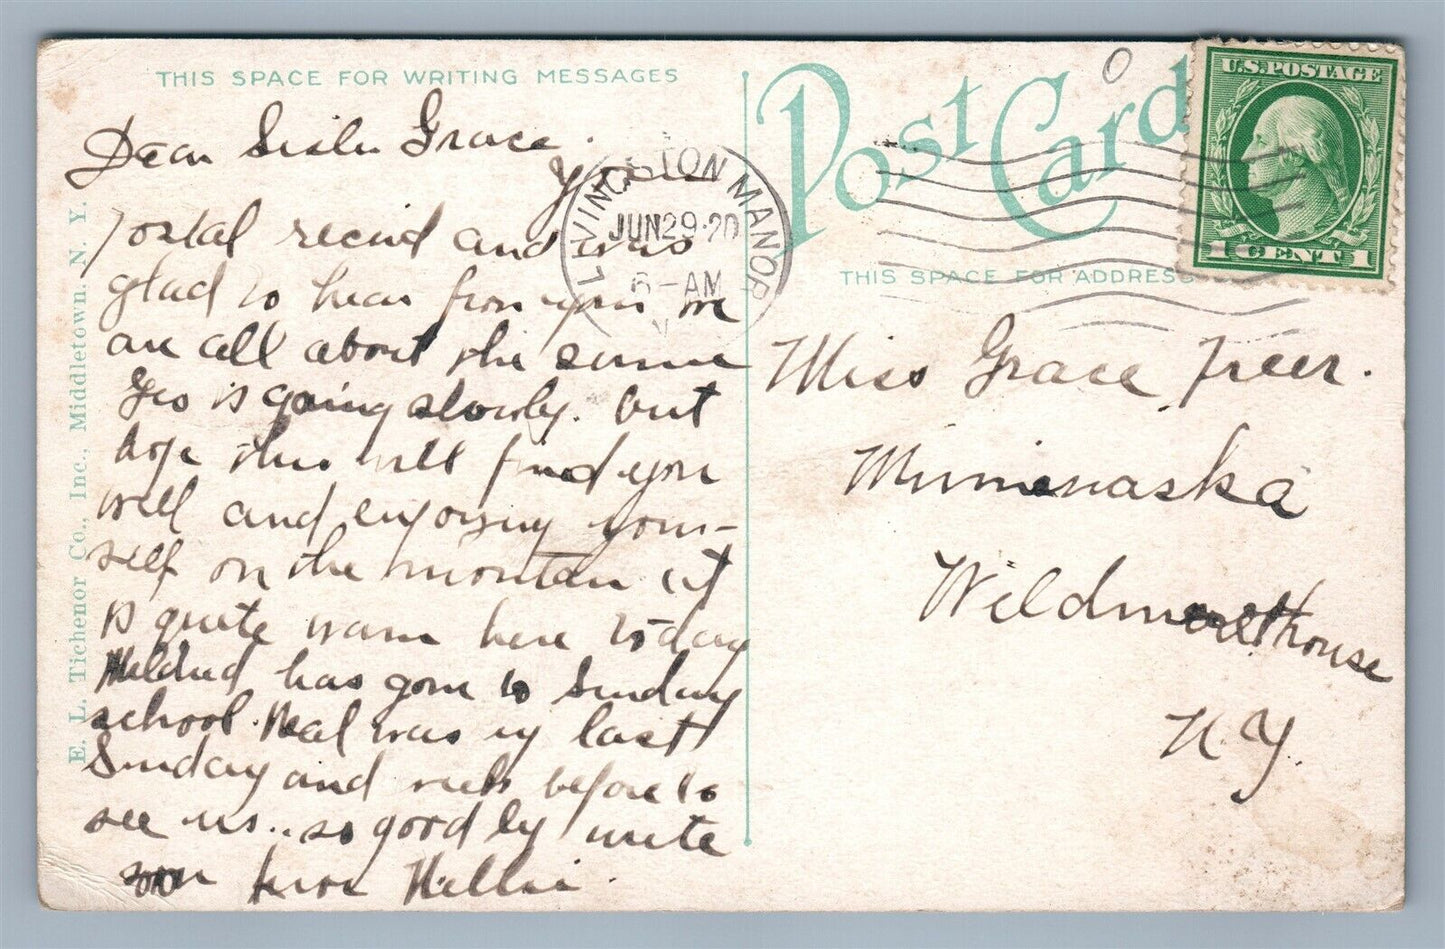 THIS SPACE FOR WRITING MESSAGES
Dear Sister Grace.
Your
postal recivd and was
glad to hear from you we
are all about the same
Geo is going slowly. but
hope this will find you
well and enjoysing your-
self on the mountain it
is quite warm here to day
Mildred has gone to Sunday
school. Neal was up last
Sunday and week before to
see us.. so good by write
soon from Nellie.
E. L. Tichenor Co., Inc., Middletown, N. Y.
Post Card
LIVINGSTON MANOR
JUN 29 20
6-AM
U.S. POSTAGE
1 CENT 1
THIS SPACE FOR ADDRESS
Miss Grace Freer.
Minnenaska
Wildmere House
N.Y.